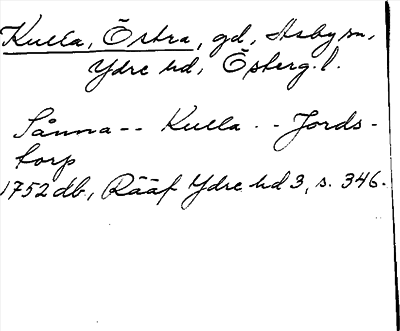 Kulla, Östra, gd, Asby sn,
Ydre hd, Österg. l.
Sånna -- Kulla -- Jords-
torp
1752 db, Rääf Ydre hd 3, s. 346.